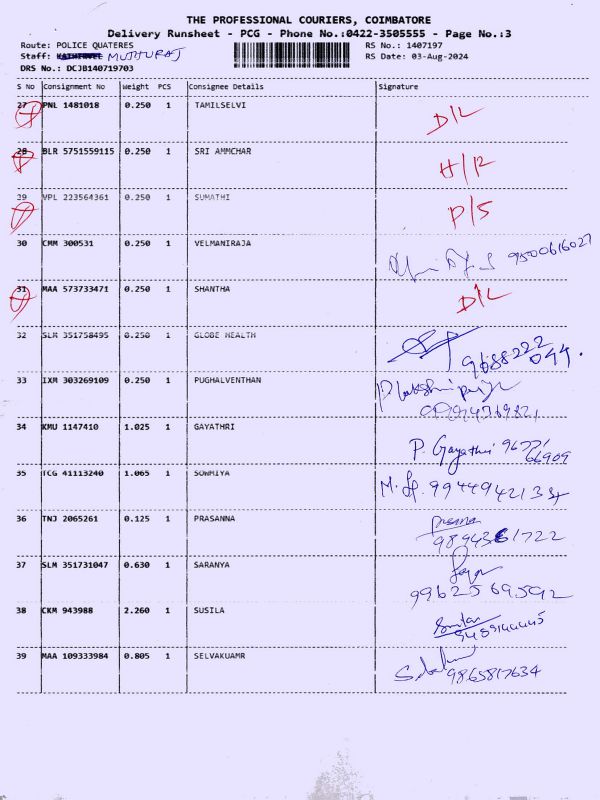 THE PROFESSIONAL COURIERS, COIMBATORE
Delivery Runsheet - PCG - Phone No.:0422-3505555 - Page No.:3
Route: POLICE QUATERES RS No.: 1407197
Staff: MUTHURAJ RS Date: 03-Aug-2024
DRS No.: DCJB140719703
S No Consignment No Weight PCS Consignee Details Signature
27 PNL 1481018 0.250 1 TAMILSELVI D/L
28 BLR 5751559115 0.250 1 SRI AMMCHAR H/R
29 VPL 223564361 0.250 1 SUMATHI P/S
30 CMM 300531 0.250 1 VELMANIRAJA 9500616027
31 MAA 573733471 0.250 1 SHANTHA D/L
32 SLM 351758495 0.250 1 GLOBE HEALTH 9688222 044.
33 IXM 303269109 0.250 1 PUGHALVENTHAN
34 KMU 1147410 1.025 1 GAYATHRI P. Gayathri 96771 66909
35 TCG 41113240 1.065 1 SOWMIYA
36 TNJ 2065261 0.125 1 PRASANNA 9894361722
37 SLM 351731047 0.630 1 SARANYA 9962569592
38 CKM 943988 2.260 1 SUSILA
39 MAA 109333984 0.805 1 SELVAKUAMR 9865817634